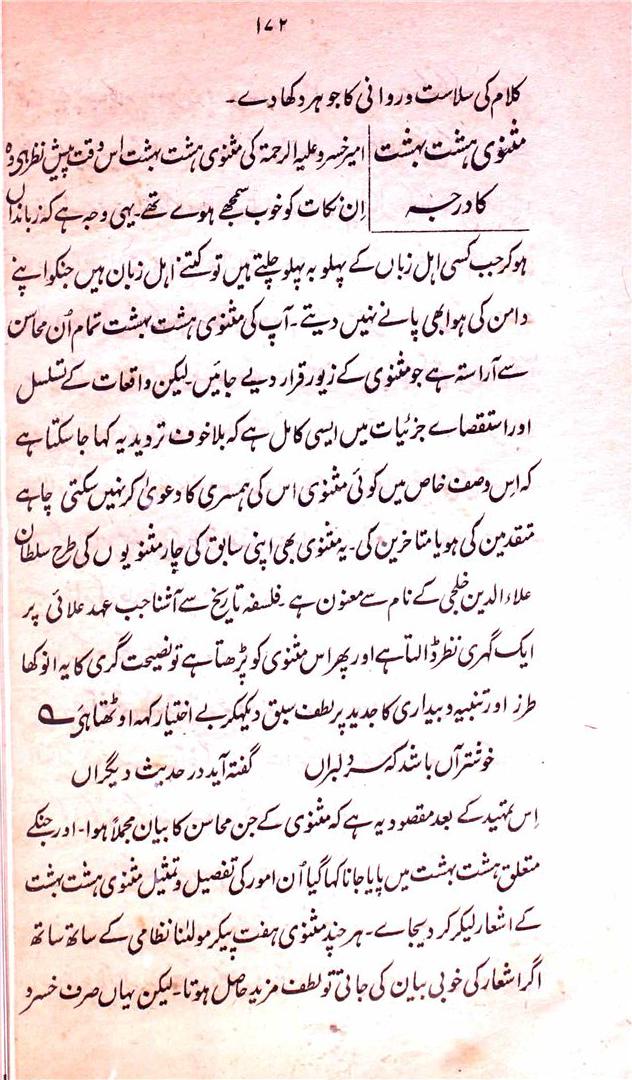 ۱۷۲
کلام کی سلاست و روانی کا جوہر دکھا دے۔
مثنوی ہشت بہشت
کا درجہ
امیر خسرو علیہ الرحمۃ کی مثنوی ہشت بہشت اس وقت پیش نظر ہی وہ
اِن نکات کو خوب سمجھے ہوے تھے۔ یہی وجہ ہے کہ زباندان
ہو کر جب کسی اہل زباں کے پہلو بہ پہلو چلتے ہیں تو کتنے اہل زبان ہیں جنکو اپنے
دامن کی ہوا بھی پانے نہیں دیتے۔ آپ کی مثنوی ہشت بہشت تمام اُن محاسن
سے آراستہ ہے جو مثنوی کے زیور قرار دیے جائیں۔ لیکن واقعات کے تسلسل
اور استقصاے جزئیات میں ایسی کامل ہے کہ بلا خوف تردید یہ کہا جا سکتا ہے
کہ اِس وصف خاص میں کوئی مثنوی اس کی ہمسری کا دعویٰ کر نہیں سکتی چاہے
متقدمین کی ہو یا متاخرین کی۔ یہ مثنوی بھی اپنی سابق کی چار مثنویوں کی طرح سلطان
علاء الدین خلجی کے نام سے معنون ہے۔ فلسفہ تاریخ سے آشنا جب عہد علائی پر
ایک گہری نظر ڈالتا ہے اور پھر اس مثنوی کو پڑھتا ہے تو نصیحت گری کا یہ انوکھا
طرز اور تنبیہ و بیداری کا جدید پر لطف سبق دیکھکر بے اختیار کہہ اوٹھتا ہی ؎
خوشتر آں باشد کہ سر دلبراں گفتہ آید در حدیث دیگراں
اِس تمہید کے بعد مقصود یہ ہے کہ مثنوی کے جن محاسن کا بیان مجملاً ہوا۔ اور جنکے
متعلق ہشت بہشت میں پایا جانا کہا گیا اُن امور کی تفصیل و تمثیل مثنوی ہشت بہشت
کے اشعار لیکر کر دیجاے۔ ہر چند مثنوی ہفت پیکر مولٰنا نظامی کے ساتھ ساتھ
اگر اشعار کی خوبی بیان کی جاتی تو لطف مزید حاصل ہوتا۔ لیکن یہاں صرف خسرو